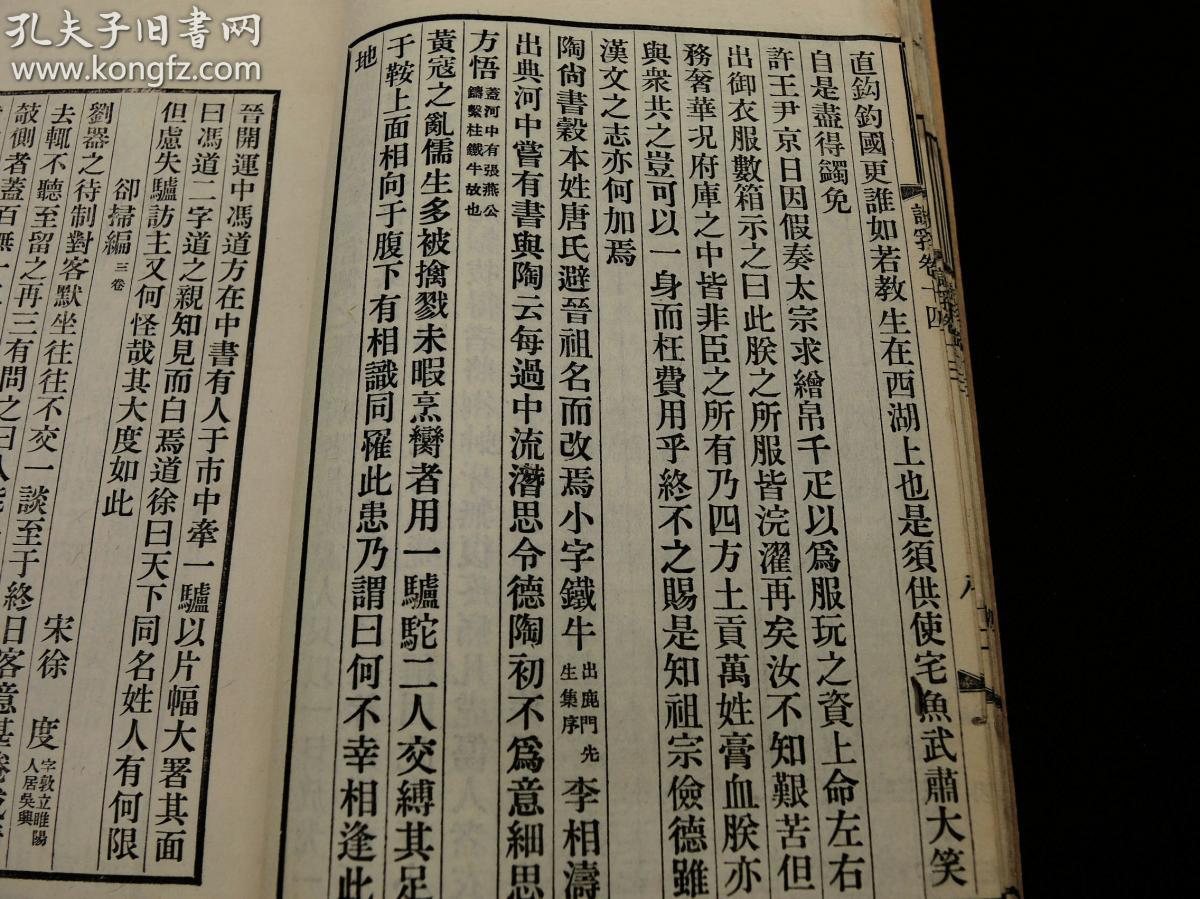 孔夫子旧书网
www.kongfz.com
直鈎釣國更誰如若教生在西湖上也是須供使宅魚武肅大笑
自是盡得蠲免
許王尹京日因假奏太宗求繒帛千疋以爲服玩之資上命左右
出御衣服數箱示之曰此朕之所服皆浣濯再矣汝不知艱苦但
務奢華況府庫之中皆非臣之所有乃四方土貢萬姓膏血朕亦
與衆共之豈可以一身而枉費用乎終不之賜是知祖宗儉德雖
漢文之志亦何加焉
陶尙書穀本姓唐氏避晉祖名而改焉小字鐵牛出鹿門先生集序李相濤
出典河中嘗有書與陶云每過中流潛思令德陶初不爲意細思
方悟蓋河中有張燕公鑄繫柱鐵牛故也
黃寇之亂儒生多被擒戮未暇烹臠者用一驢駝二人交縛其足
于鞍上面相向于腹下有相識同罹此患乃謂曰何不幸相逢此
地
晉開運中馮道方在中書有人于市中牽一驢以片幅大署其面
曰馮道二字道之親知見而白焉道徐曰天下同名姓人有何限
但慮失驢訪主又何怪哉其大度如此
卻掃編三卷 宋徐度字敦立睢陽人居吳興
劉器之待制對客默坐往往不交一談至于終日客意甚
去輒不聽至留之再三有問之曰人能
敧側者蓋百無一
說郛卷十四
八